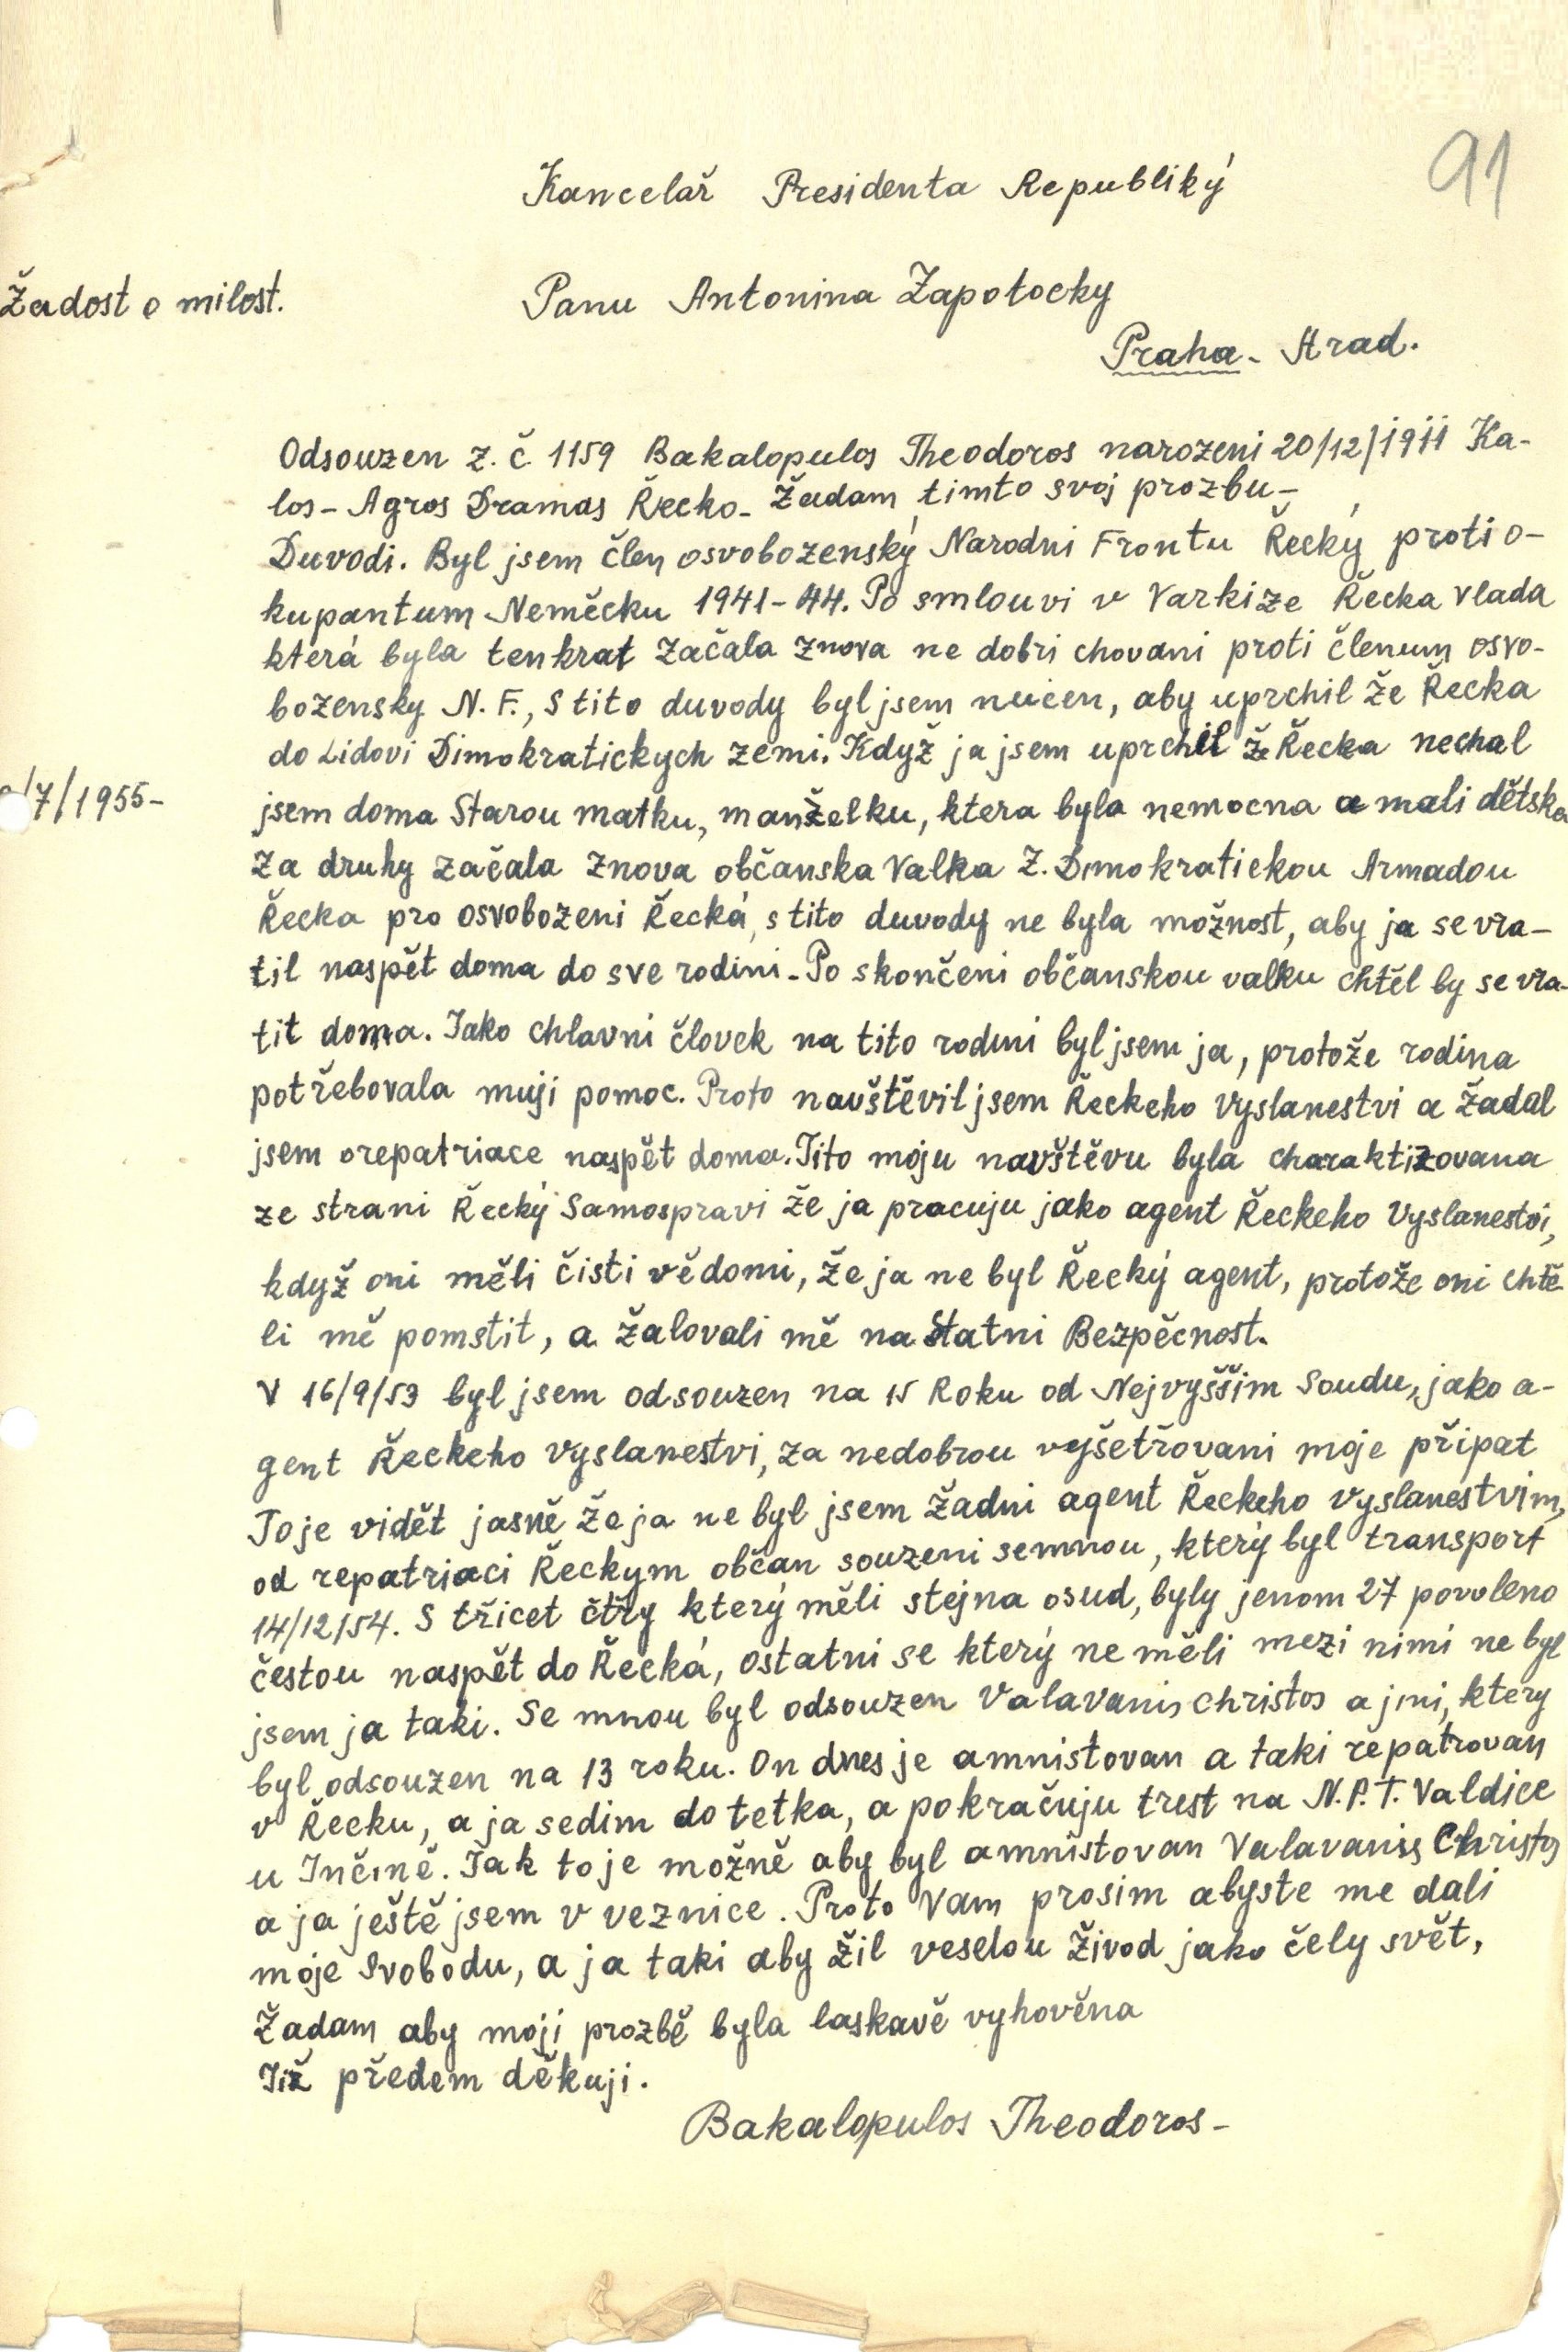 91
Kancelař Presidenta Republiký
Žadost o milost.
Panu Antonina Zapotocky
Praha - Hrad.
Odsouzen z. č. 1159 Bakalopulos Theodoros narozeni 20/12/1911 Ka-
los - Agros Dramas Řecko - Žadam timto svoj prozbu -
Duvodi. Byl jsem člen osvobozenský Narodni Frontu Řecký proti o-
kupantum Německu 1941 - 44. Po smlouvi v Varkize Řecka vlada
která byla tenkrat začala znova ne dobri chovani proti členum osvo-
bozensky N. F., S tito duvody byl jsem nucen, aby uprchil že Řecka
do Lidovi Dimokratickych zemi. Když ja jsem uprchil že Řecka nechal
/7/1955 -
jsem doma Starou matku, manželku, ktera byla nemocna a mali dětska
Za druhy začala znova občanska Valka Z. Dimokratickou Armadou
Řecka pro osvobozeni Řecká, s tito duvody ne byla možnost, aby ja se vra-
til naspět doma do sve rodini - Po skončeni občanskou valku chtěl by se vra-
tit doma. Jako chlavni človek na tito rodini byl jsem ja, protože rodina
potřebovala muji pomoc. Proto navštěvil jsem Řeckeho Vyslanestvi a žadal
jsem orepatriace naspět doma. Tito moju navštěvu byla charaktizovana
ze strani Řecký Samospravi že ja pracuju jako agent Řeckeho Vyslanestvi,
když oni měli čisti vědomi, že ja ne byl Řecký agent, protože oni chtě-
li mě pomstit, a žalovali mě na Statni Bezpěcnost.
V 16/9/53 byl jsem odsouzen na 15 Roku od Nejvyššim Soudu, jako a-
gent Řeckeho vyslanestvi, za nedobrou vyšetřovani moje připat
To je vidět jasně že ja ne byl jsem žadni agent Řeckeho vyslanestvim,
od repatriaci Řeckym občan souzeni semnou, který byl transport
14/12/54. S třicet čtřy který měli stejna osud, byly jenom 27 povoleno
čestou naspět do Řecká, ostatni se který ne měli mezi nimi ne byl
jsem ja taki. Se mnou byl odsouzen Valavanis Christos a jini, ktery
byl odsouzen na 13 roku. On dnes je amnistovan a taki repatrovan
v Řecku, a ja sedim do tetka, a pokračuju trest na N. P. T. Valdice
u Inčině. Jak to je možně aby byl amnistovan Valavanis Christos
a ja ještě jsem v veznice. Proto Vam prosim abyste me dali
moje Svobodu, a ja taki aby žil veselou Život jako čely svět,
Žadam aby moji prozbě byla laskavě vyhověna
Již předem děkuji.
Bakalopulos Theodoros -